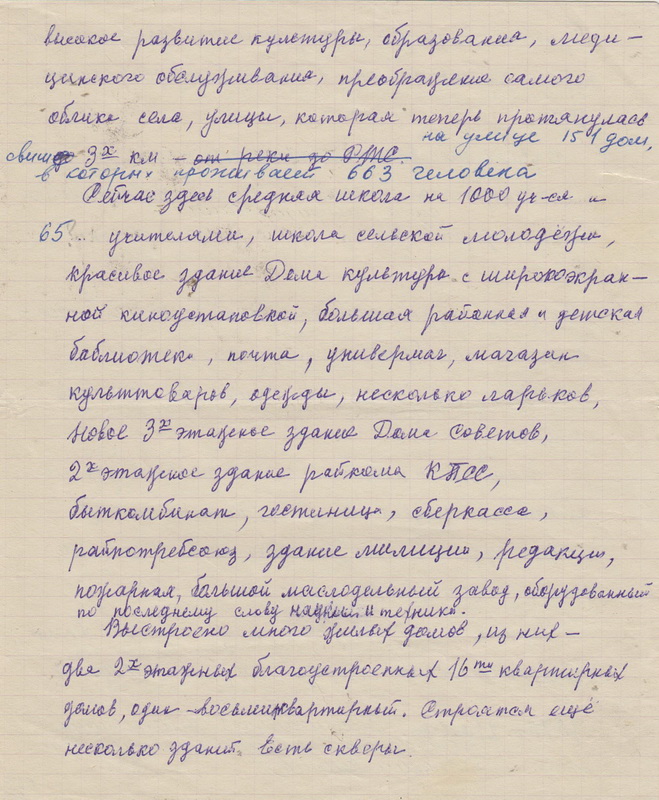 высокое развитие культуры, образования, меди-
цинского обслуживания, преобращение самого
облика села, улицы, которая теперь протянулась
на улице 151 дом,
свыше 3х км - от реки до РТС.
в которых проживает 663 человека
Сейчас здесь средняя школа на 1000 уч-ся и
65 учителями, школа сельской молодёжи,
красивое здание Дома культуры с широкоэкран-
ной киноустановкой, большая районная и детская
библиотека, почта, универмаг, магазин
культтоваров, одежды, несколько ларьков,
Новое 3х этажное здание Дома Советов,
2х этажное здание райкома КПСС,
быткомбинат, гостиница, сберкасса,
райпотребсоюз, здание милиции, редакции,
пожарная, большой маслодельный завод, оборудованный
по последнему слову науки и техники.
Выстроено много жилых домов, из них -
два 2х этажных благоустроенных 16ти квартирных
домов, один - восьмиквартирный. Строятся ещё
несколько зданий. Есть скверы.